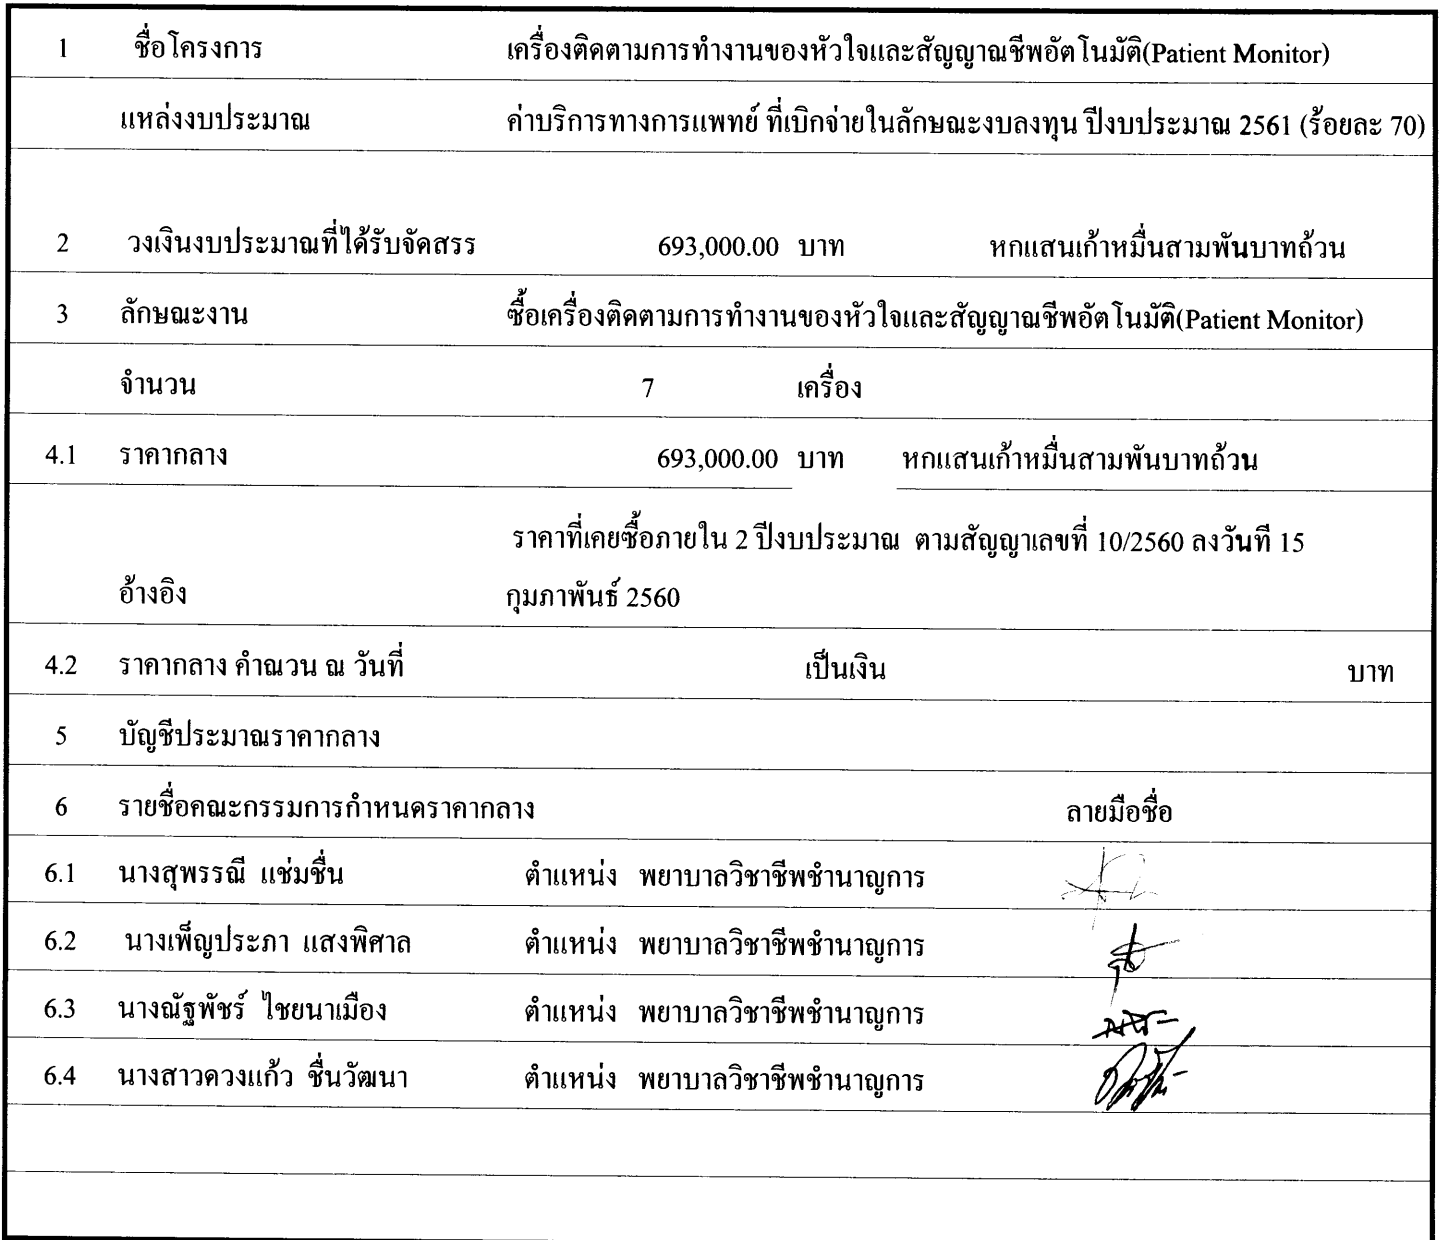 1 ชื่อโครงการ เครื่องติดตามการทำงานของหัวใจและสัญญาณชีพอัตโนมัติ(Patient Monitor)
แหล่งงบประมาณ ค่าบริการทางการแพทย์ ที่เบิกจ่ายในลักษณะงบลงทุน ปีงบประมาณ 2561 (ร้อยละ 70)
2 วงเงินงบประมาณที่ได้รับจัดสรร 693,000.00 บาท หกแสนเก้าหมื่นสามพันบาทถ้วน
3 ลักษณะงาน ซื้อเครื่องติดตามการทำงานของหัวใจและสัญญาณชีพอัตโนมัติ(Patient Monitor)
จำนวน 7 เครื่อง
4.1 ราคากลาง 693,000.00 บาท หกแสนเก้าหมื่นสามพันบาทถ้วน
ราคาที่เคยซื้อภายใน 2 ปีงบประมาณ ตามสัญญาเลขที่ 10/2560 ลงวันที 15
อ้างอิง กุมภาพันธ์ 2560
4.2 ราคากลาง คำณวน ณ วันที่ เป็นเงิน บาท
5 บัญชีประมาณราคากลาง
6 รายชื่อคณะกรรมการกำหนดราคากลาง ลายมือชื่อ
6.1 นางสุพรรณี แช่มชื่น ตำแหน่ง พยาบาลวิชาชีพชำนาญการ
6.2 นางเพ็ญประภา แสงพิศาล ตำแหน่ง พยาบาลวิชาชีพชำนาญการ
6.3 นางณัฐพัชร์ ไชยนาเมือง ตำแหน่ง พยาบาลวิชาชีพชำนาญการ
6.4 นางสาวดวงแก้ว ชื่นวัฒนา ตำแหน่ง พยาบาลวิชาชีพชำนาญการ